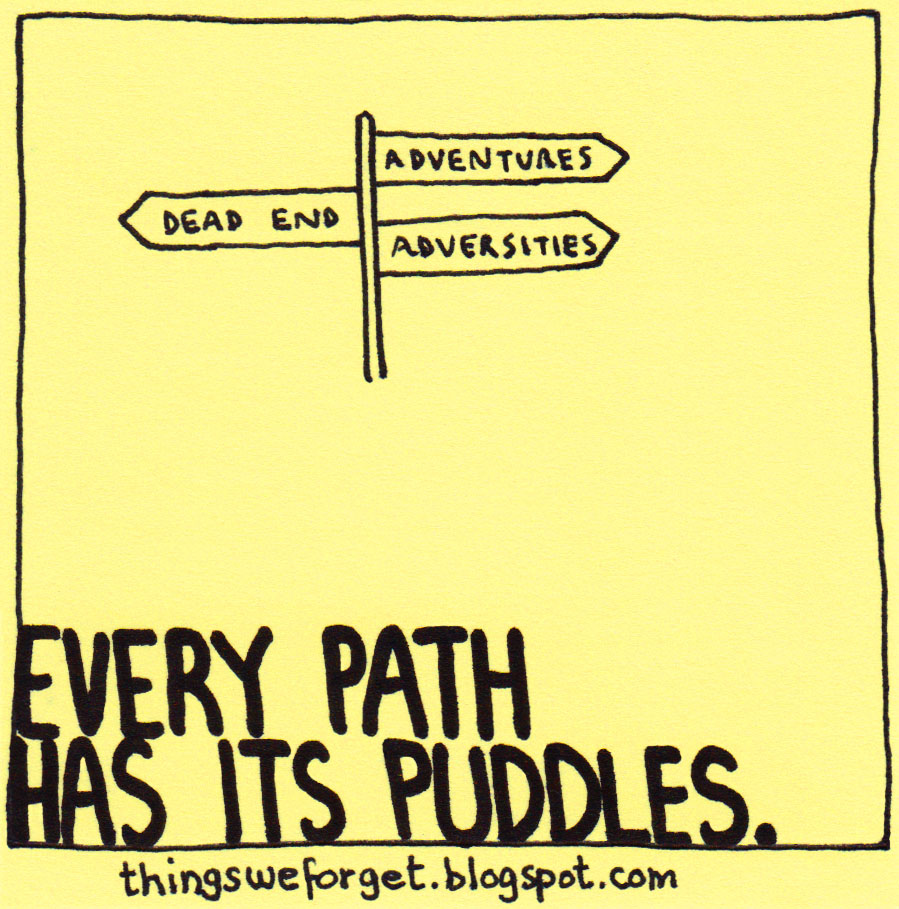 ADVENTURES
DEAD END
ADVERSITIES
EVERY PATH
HAS ITS PUDDLES.
thingsweforget.blogspot.com